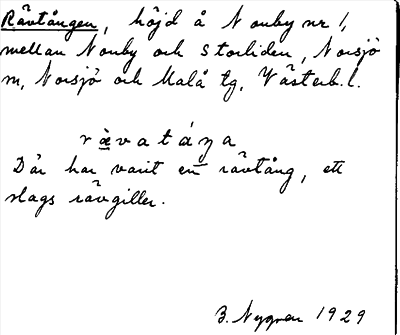 Rävtången, höjd å Norrby nr 1,
mellan Norrby och Storliden, Norsjö
m, Norsjö och Malå tg, Västerb. l.
rævatáŋa
Där har varit en rävtång, ett
slags rävgiller.
B. Nygren 1929